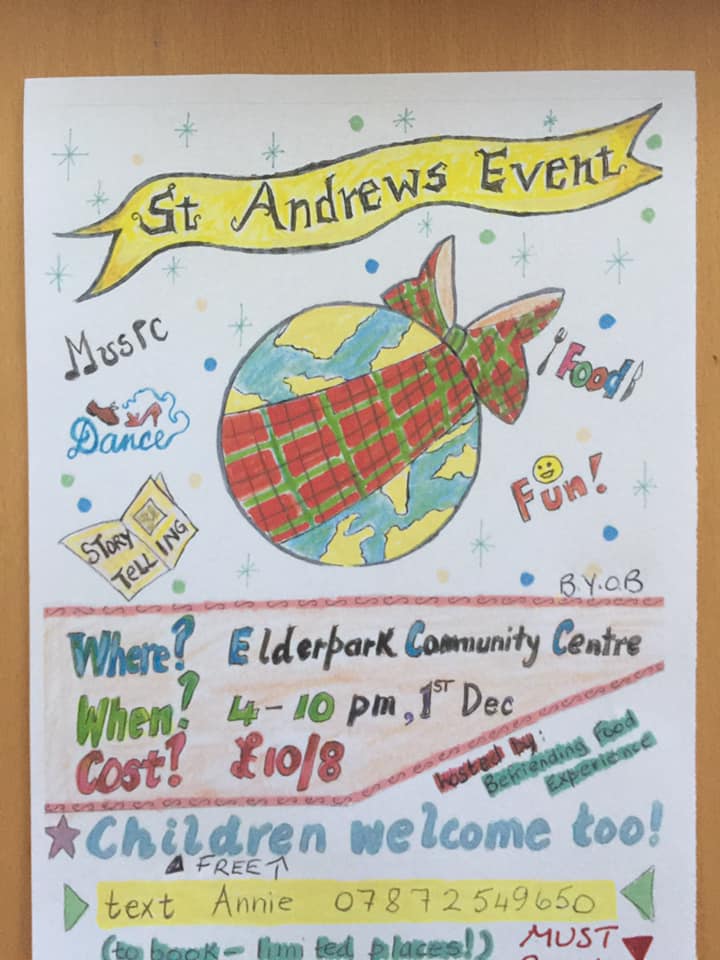 St Andrews Event
Music
Dance
Food
STORY TELLING
Fun!
B.Y.O.B
Where? Elderpark Community Centre
When? 4-10 pm, 1ST Dec
Cost? £10/8
hosted by:
Befriending Food
Experience
Children welcome too!
FREE
text Annie 07872549650
(to book - limited places!) MUST